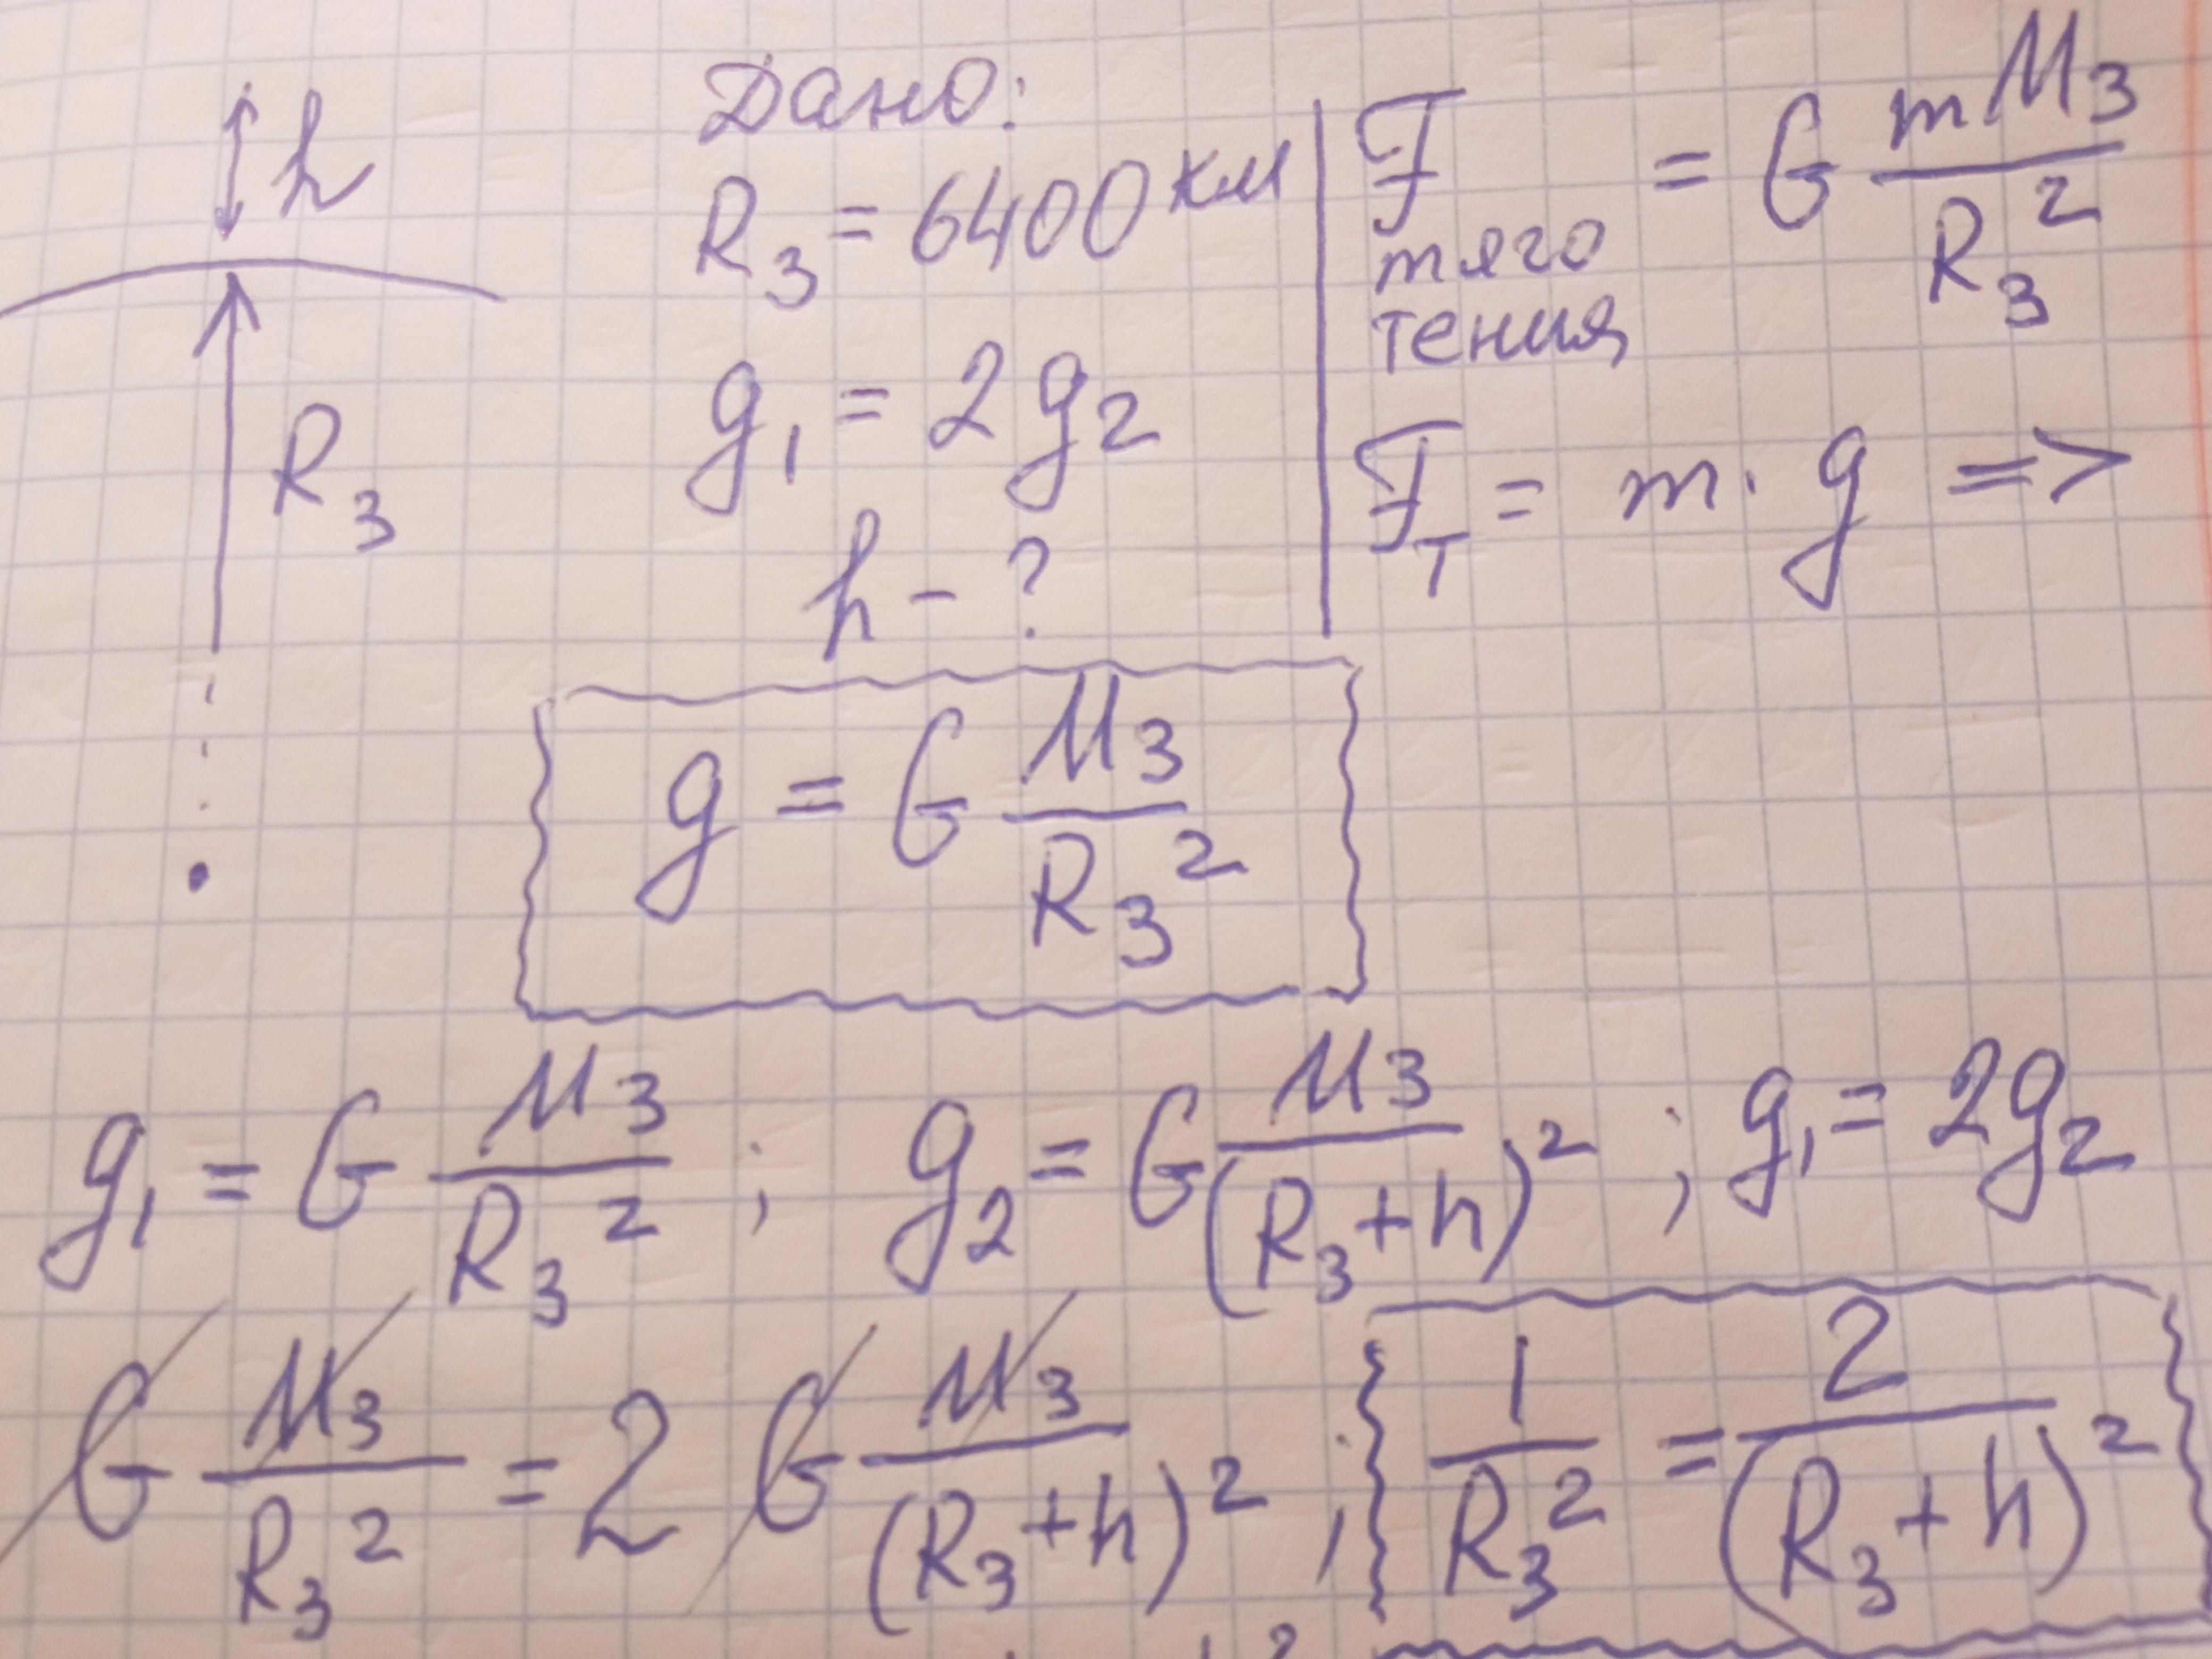 h
R₃
Дано:
R₃ = 6400 км
g₁ = 2g₂
h - ?
F тяготения = G mM₃/R₃²
Fт = m · g =>
g = G M₃/R₃²
g₁ = G M₃/R₃² ; g₂ = G M₃/(R₃+h)² ; g₁ = 2g₂
G M₃/R₃² = 2 G M₃/(R₃+h)² ; 1/R₃² = 2/(R₃+h)²